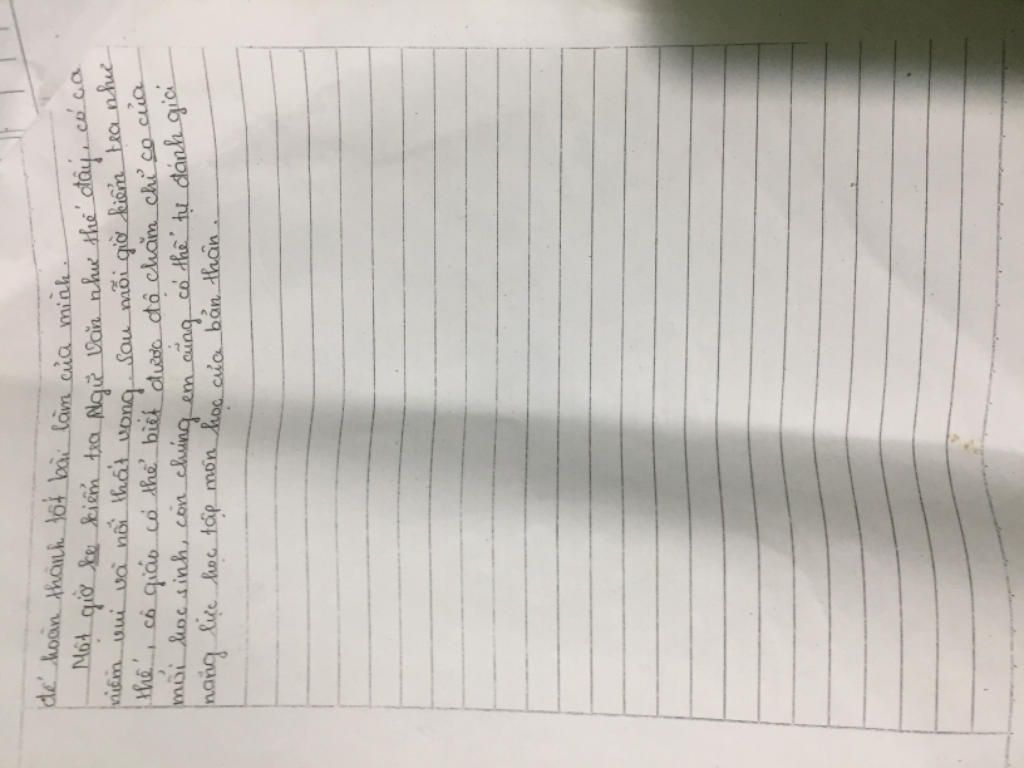 để hoàn thành tốt bài làm của mình.
Một giờ ke kiểm tra Ngữ Văn như thế đấy, có cả
niềm vui và nỗi thất vọng. sau mỗi giờ kiểm tra như
thế, cô giáo có thể biết được độ chăm chỉ co của
mỗi học sinh, còn chúng em cũng có thể tự đánh giái
năng lực học tập môn học của bản thân.